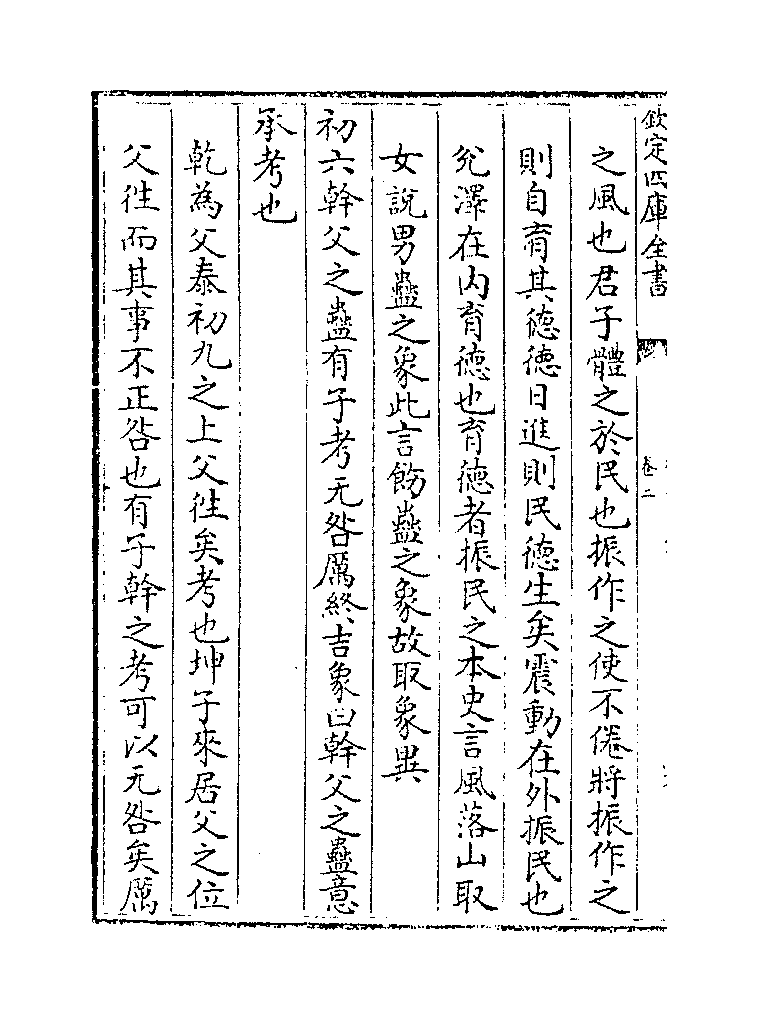 欽定四庫全書
卷二
之風也君子體之於民也振作之使不倦將振作之
則自育其德德日進則民德生矣震動在外振民也
兊澤在内育德也育德者振民之本史言風落山取
女說男蠱之象此言飭蠱之象故取象異
初六幹父之蠱有子考无咎厲終吉象曰幹父之蠱意
承考也
乾為父泰初九之上父徃矣考也坤子來居父之位
父徃而其事不正咎也有子幹之考可以无咎矣厲